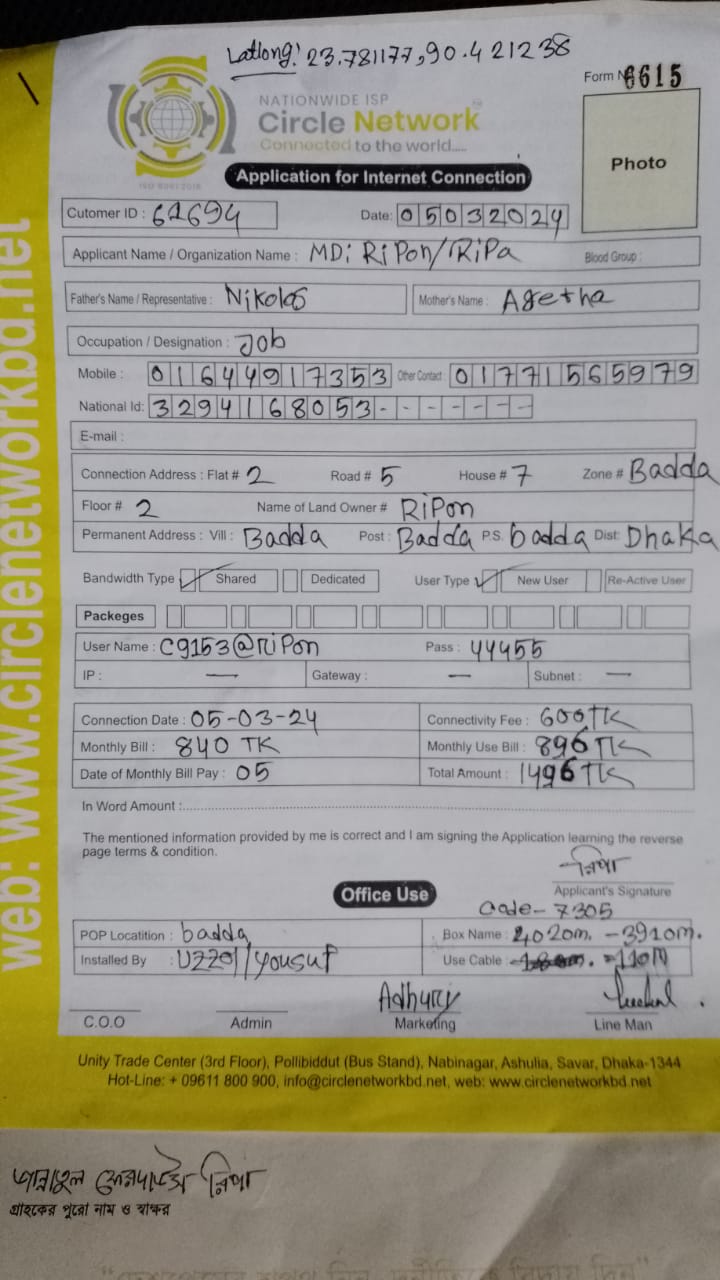 Latlong: 23.781177,90.421238
Form N 6615
NATIONWIDE ISP
Circle Network
Connected to the world.....
ISO 9001:2015
Application for Internet Connection
Photo
Cutomer ID : 61694 Date: 05032024
Applicant Name / Organization Name : MD: RiPon/RiPa Blood Group :
Father's Name / Representative : Nikolas Mother's Name : Agetha
Occupation / Designation : Job
Mobile : 01644917353 Other Contact : 01771565979
National Id: 3294168053-------
E-mail :
Connection Address : Flat # 2 Road # 5 House # 7 Zone # Badda
Floor # 2 Name of Land Owner # RiPon
Permanent Address : Vill : Badda Post : Badda P.S. badda Dist: Dhaka
Bandwidth Type ✓ Shared Dedicated User Type ✓ New User Re-Active User
Packeges
User Name : C9153@RiPon Pass : 44455
IP : — Gateway : — Subnet : —
Connection Date : 05-03-24 Connectivity Fee : 600TK
Monthly Bill : 840 TK Monthly Use Bill : 896TK
Date of Monthly Bill Pay : 05 Total Amount : 1496TK
In Word Amount :
The mentioned information provided by me is correct and I am signing the Application learning the reverse
page terms & condition.
রিপা
Applicant's Signature
Office Use
Code- 7305
POP Locatition : badda Box Name : 4020m. -3910m.
Installed By : Uzzol/Yousuf Use Cable : =110M
Adhury
C.O.O Admin Marketing Line Man
Unity Trade Center (3rd Floor), Pollibiddut (Bus Stand), Nabinagar, Ashulia, Savar, Dhaka-1344
Hot-Line: + 09611 800 900, info@circlenetworkbd.net, web: www.circlenetworkbd.net
web: www.circlenetworkbd.net
জান্নাতুল ফেরদাউস রিপা
গ্রাহকের পুরো নাম ও স্বাক্ষর